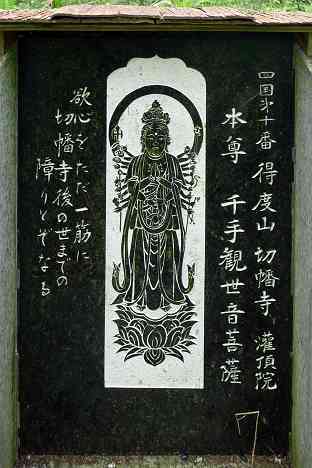 四国第十番 得度山 切幡寺 灌頂院
本尊 千手観世音菩薩
欲心をただ一筋に
切幡寺後の世までの
障りとぞなる